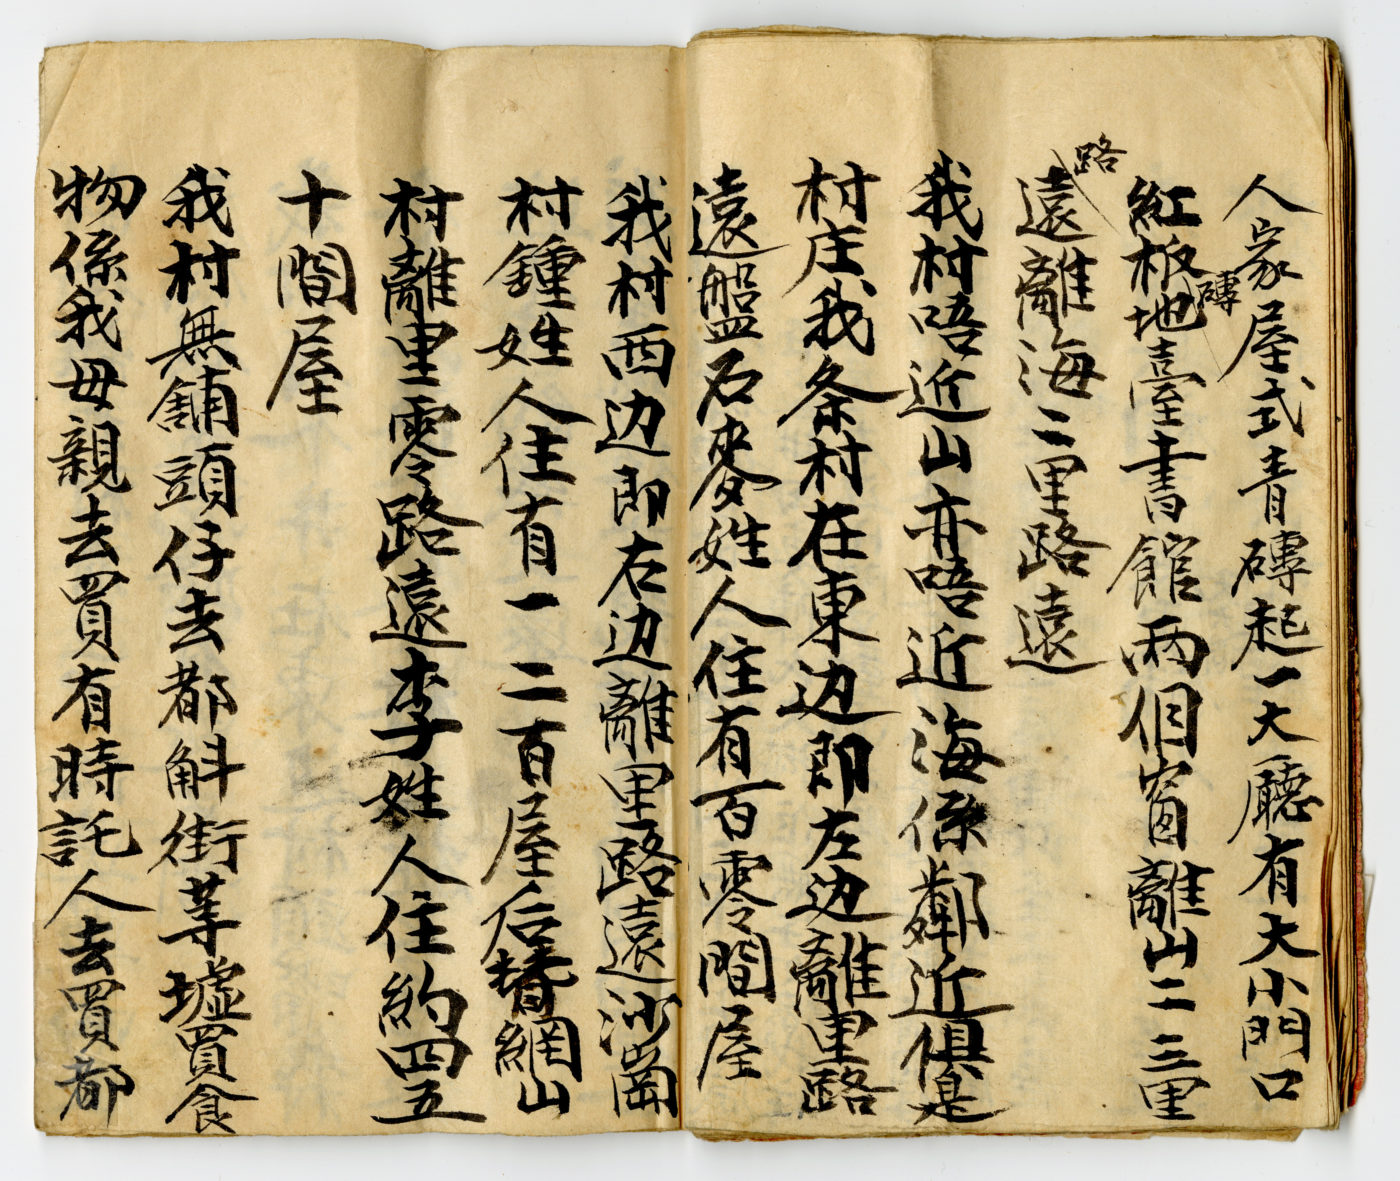 人家屋式青磚起一大廳有大小門口
紅板地磚臺書館兩個窗離山二三里
路遠離海二里路遠
我村唔近山亦唔近海係鄰近俱是
村庄我条村在東边即左边離里路
遠盤石麥姓人住有百零間屋
我村西边即右边離里路遠沙崗
村鍾姓人住有一二百屋后背網山
村離里零路遠李姓人住約四五
十間屋
我村無舖頭仔去都斛街莘墟買食
物係我母親去買有時託人去買都